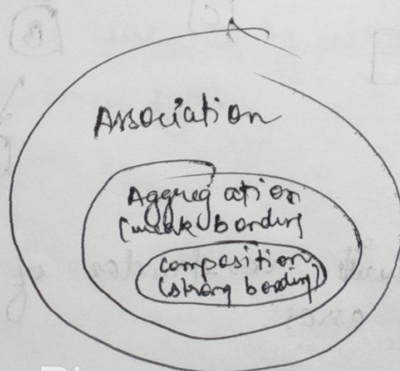 Association
Aggregation
(weak bonding
composition
(strong bonding)